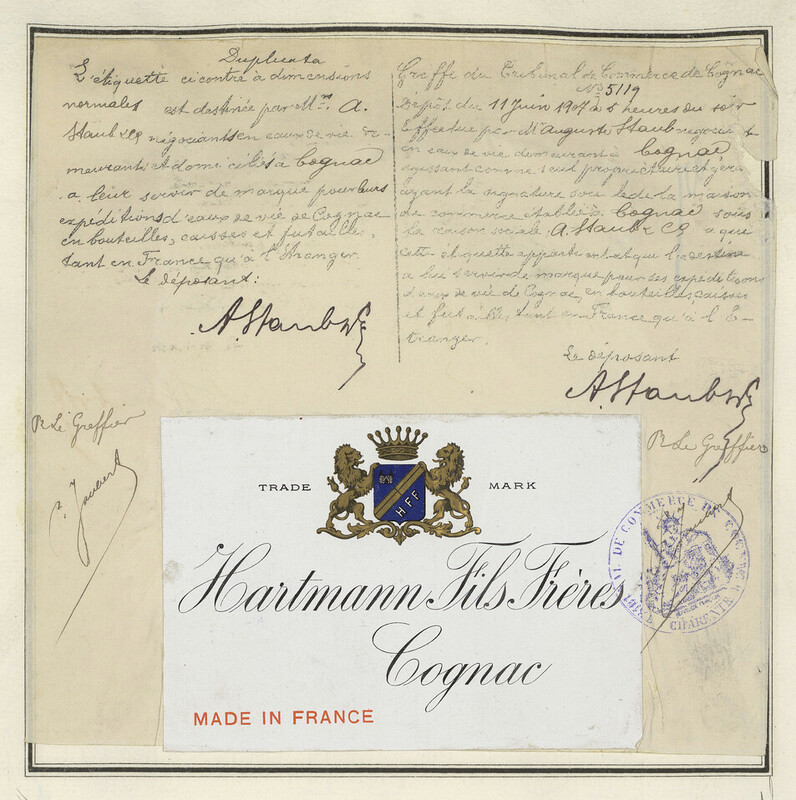 Duplicata
L'étiquette ci contre à dimensions
normales est destinée par Mr. A.
Staub & Co négociants en eaux de vie de-
meurant et domiciliés à Cognac
a leur servir de marque pour leurs
expéditions d'eaux de vie de Cognac
en bouteilles, caisses et futailles,
tant en France qu'à l'étranger.
Le déposant:
A. Staub & Co
Greffe du Tribunal de Commerce de Cognac
No 5119
Dépôt du 11 Juin 1907 à 5 heures du soir
Effectué par Mr Auguste Staub négociant
en eaux de vie demeurant à Cognac
agissant comme seul propriétaire et gérant
ayant la signature sociale de la maison
de commerce établie à Cognac sous
la raison sociale A. Staub & Co a que
cette étiquette appartient et qui l'a destine
a lui servir de marque pour ses expéditions
d'eaux de vie de Cognac, en bouteilles, caisses
et futailles, tant en France qu'à l'É-
tranger.
Le déposant
A. Staub & Co
P. Le Greffier
P. Le Greffier
TRADE MARK
H F F
Hartmann Fils Frères
Cognac
MADE IN FRANCE
DE COMMERCE DE COGNAC
CHARENTE